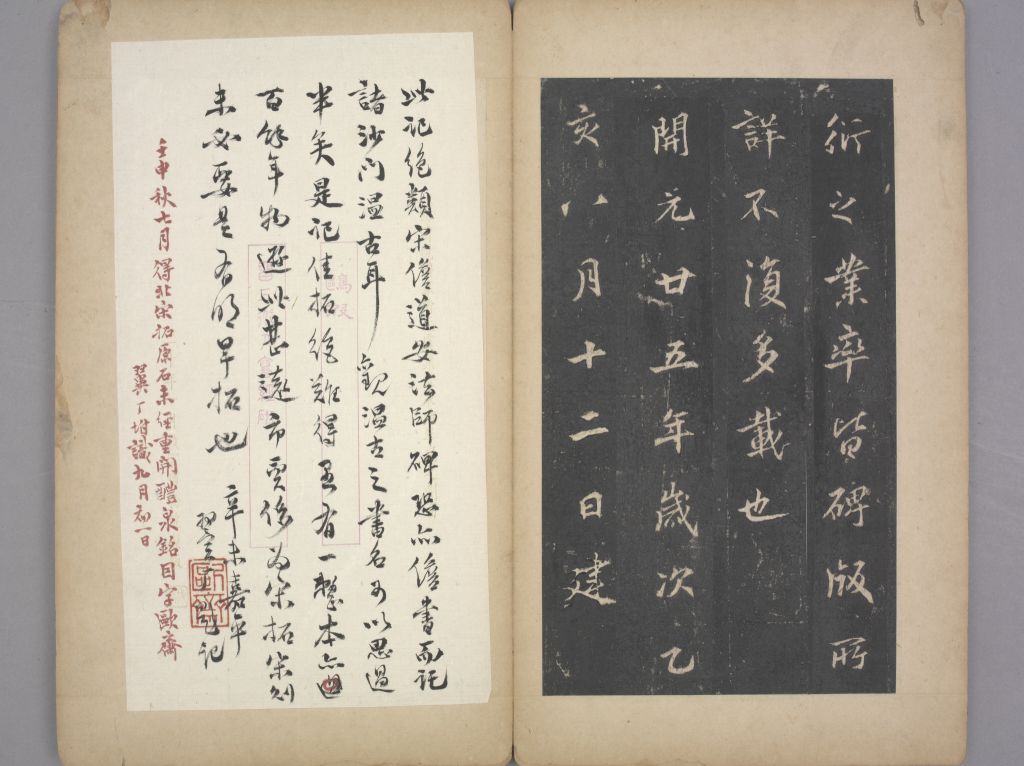 衍之業率皆碑版所
詳不復多載也
開元廿五年歲次乙
亥八月十二日建
此記絕類宋儋道安法師碑恐亦儋書而託
諸沙門溫古耳觀溫古之書名可以思過
半矣是記佳拓絕難得至有一整本亦
百餘年物遜此甚遠市賈侈為宋拓宋刻
未必要是有明早拓也
辛未嘉平
記
壬申秋七月得北宋拓原石未經重開醴泉銘因字歐齋
翼丁珍識九月初一日